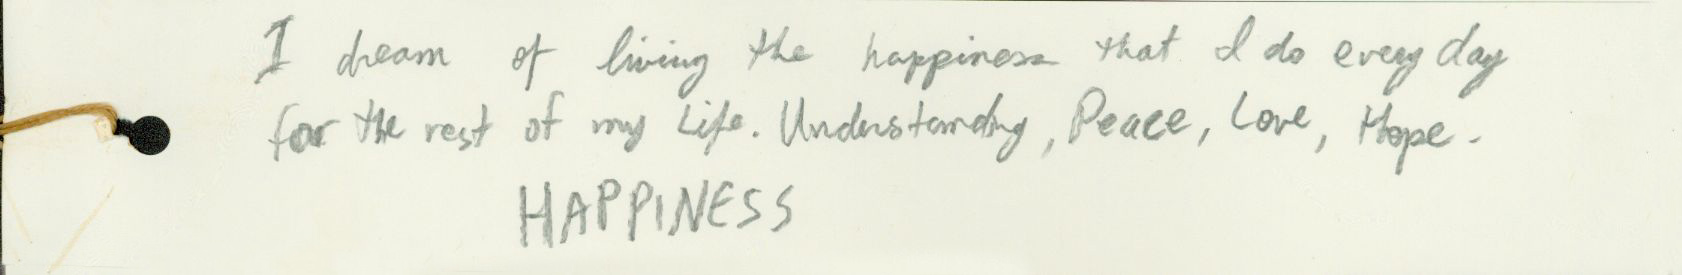 I dream of living the happiness that I do every day
for the rest of my Life. Understanding, Peace, Love, Hope.
HAPPINESS